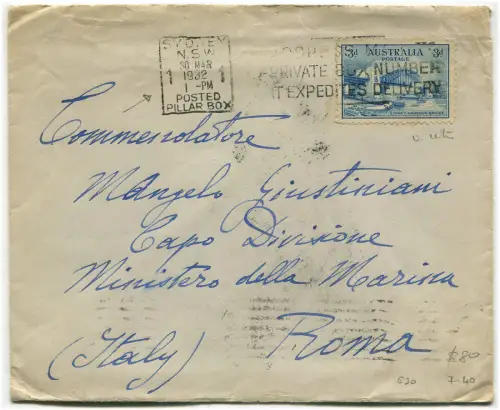 SYDNEY
N.S.W
30 MAR
1932
1 -PM
POSTED
PILLAR BOX
PRIVATE BOX NUMBER
IT EXPEDITES DELIVERY
3d AUSTRALIA 3d
POSTAGE
SYDNEY HARBOUR BRIDGE
Commendatore
M Angelo Giustiniani
Capo Divisione
Ministero della Marina
(Italy) Roma
$80
£30 7-40